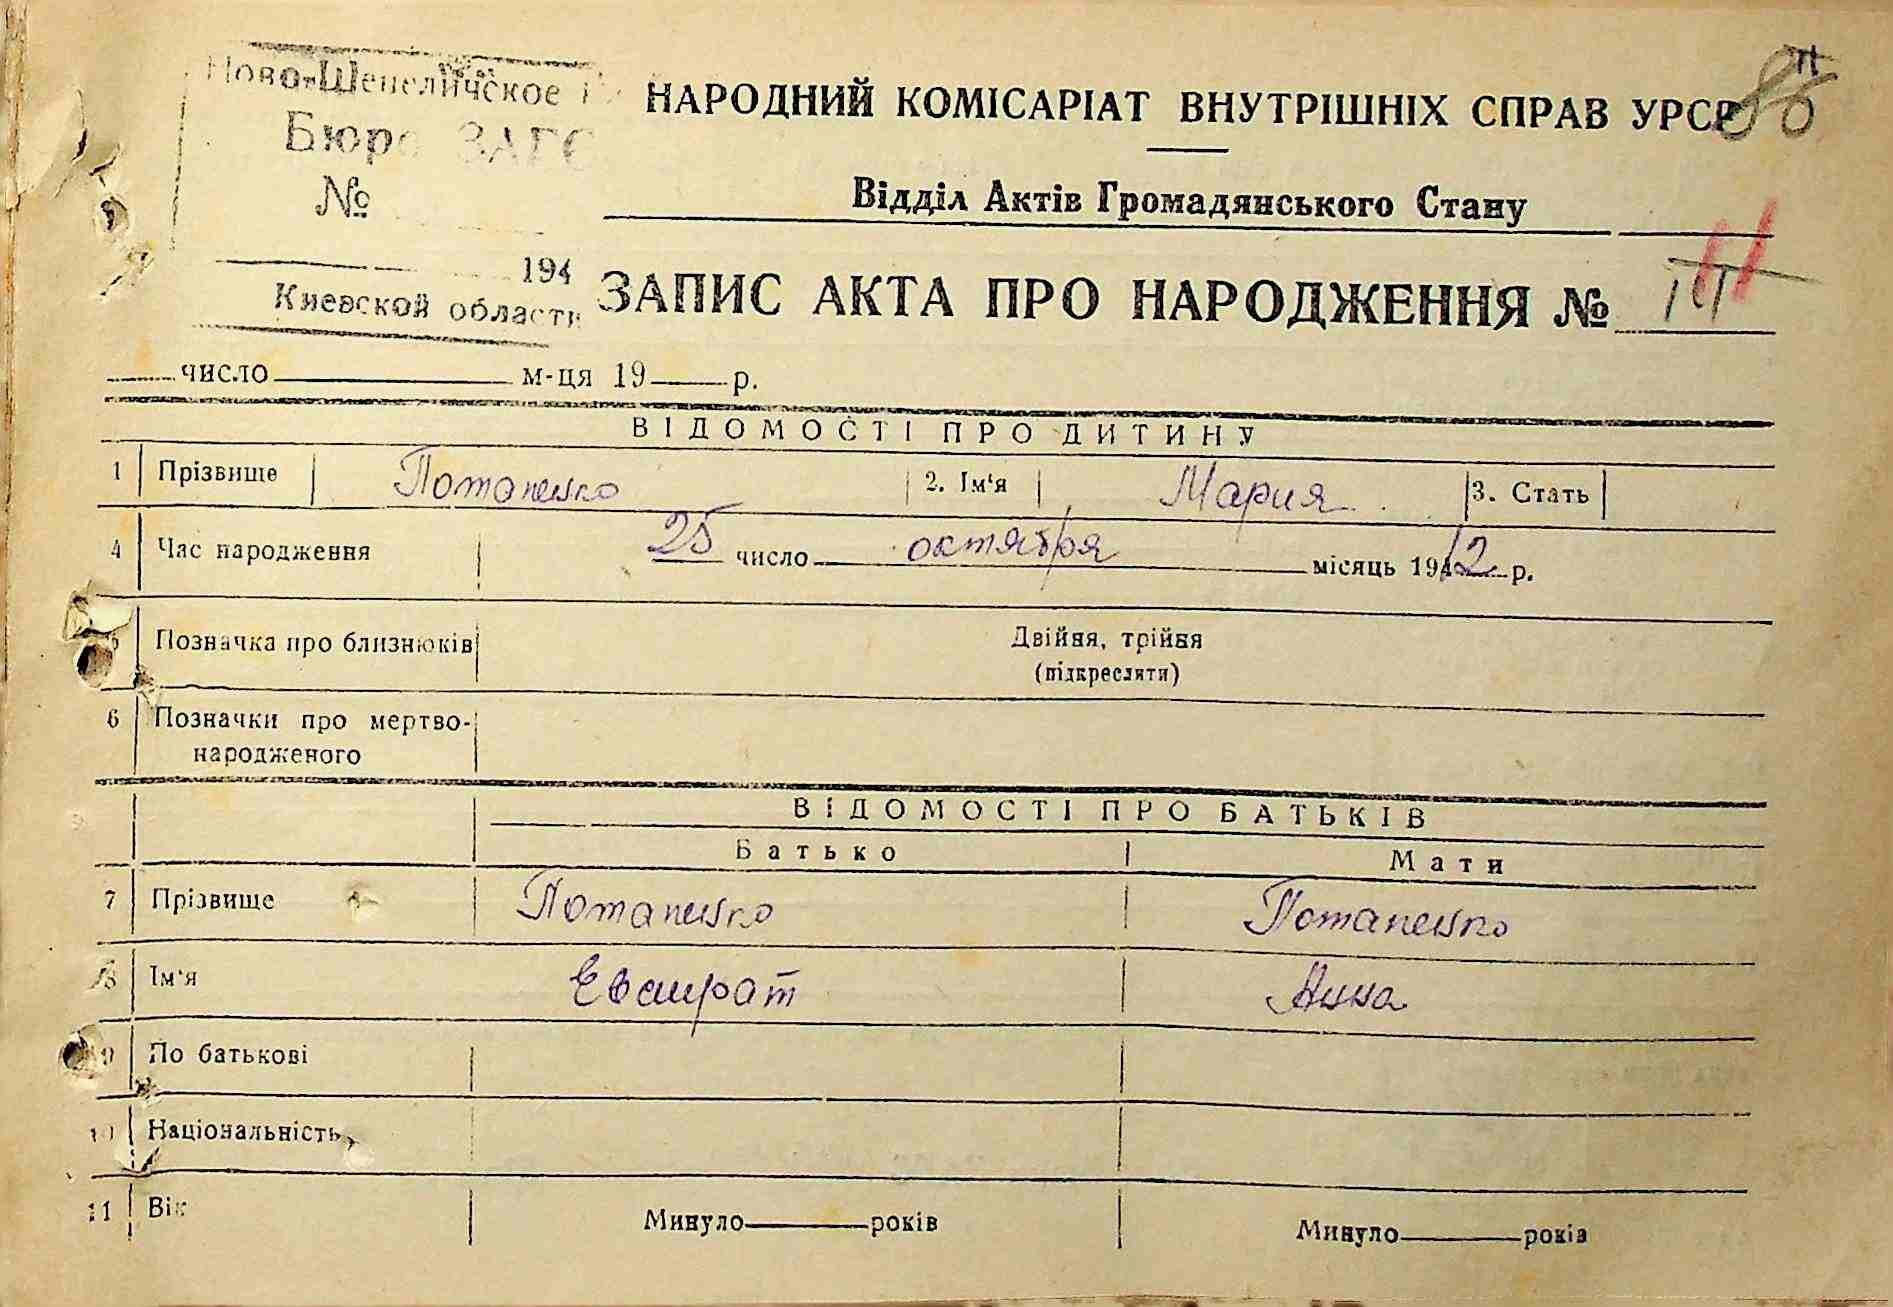 Ново-Шепеличское
Бюро ЗАГС
№
194
Киевской области
НАРОДНИЙ КОМІСАРІАТ ВНУТРІШНІХ СПРАВ УРСР
86
Відділ Актів Громадянського Стану
ЗАПИС АКТА ПРО НАРОДЖЕННЯ №
число м-ця 19 р.
ВІДОМОСТІ ПРО ДИТИНУ
1 Прізвище Потапенко 2. Ім'я Мария 3. Стать
4 Час народження 25 число октября місяць 1942 р.
5 Позначка про близнюків Двійня, трійня
(підкреслити)
6 Позначки про мертво-
народженого
ВІДОМОСТІ ПРО БАТЬКІВ
Батько Мати
7 Прізвище Потапенко Потапенко
8 Ім'я Евстрат Анна
9 По батькові
10 Національність
11 Вік Минуло років Минуло років